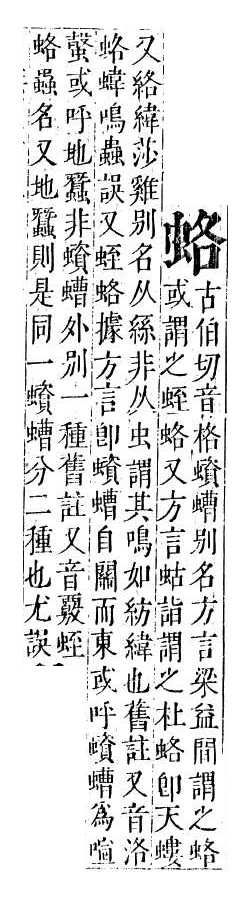 蛒
古伯切音格蠀螬别名方言梁益閒謂之蛒
或謂之蛭蛒又方言蛄詣謂之杜蛒卽天螻
又絡緯莎雞别名从絲非从虫謂其鳴如紡緯也舊註又音洛
蛒鳴蟲誤又蛭蛒據方言卽蠀螬自關而東或呼蠀螬爲喧
螜或呼地蠶非蠀螬外别一種舊註又音覈蛭
蛒蟲名又地蠶則是同一蠀螬分二種也尤誤